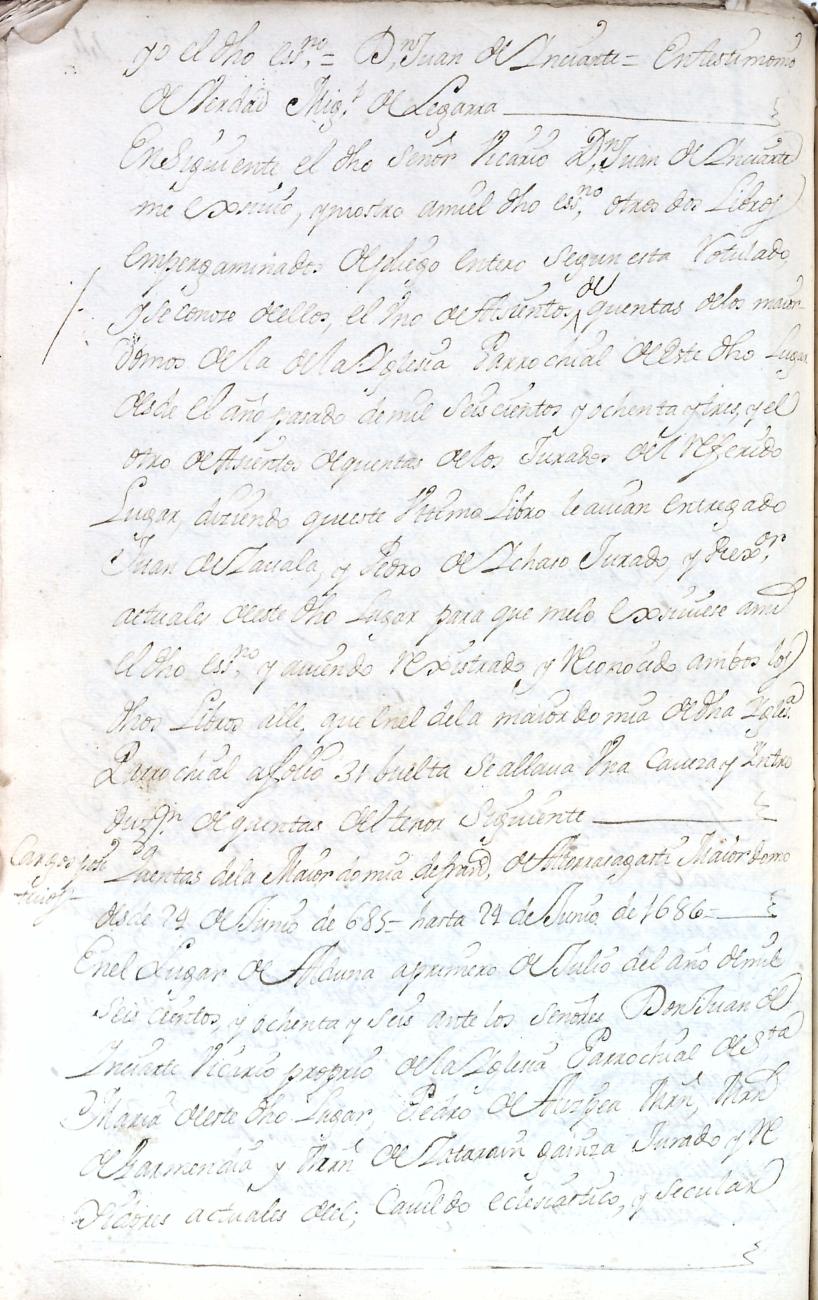 yo el dho essno = Dn Juan de Inciarte = En testimonio
de Verdad Migl de Legarra
En Siguiente el dho Señor Vicario Dn Juan de Inciarte
me exsivio, y mostro a mi el dho essno otros dos Libros
empergaminados de pliego entero segun esta Rotulado,
y se conoze de ellos, el Uno de Asientos de quentas de los maior-
domos de la de la Yglesia Parrochial de este dho Lugar
desde el año pasado de mil Seis cientos y ochenta y tres, y el
otro de Asientos de quentas de los Jurados del Referido
Lugar, diziendo que este Ultimo Libro le avian entregado
Juan de Zavala, y Pedro de Achaso Jurado, y Rexor
actuales de este dho Lugar para que me lo exsiviese a mi
el dho essno y aviendo Rexistrado, y Reconozido ambos los
dhos Libros alle, que en el de la maiordomia de dha Yglesa
Parrochial a folio 31 buelta se allava Una Caveza, y Intro
duzon de quentas del tenor Siguiente
Cargos
Quentas de la Maiordomia de Maiordomo
desde 24 de Junio de 685 = hasta 24 de Junio de 1686 =
En el Lugar de Alduna a primero de Julio del año de mil
Seis cientos, y ochenta y seis ante los Señores Don Juan de
Inciarte Vicario proprio de la Yglesia Parrochial de Sta
Maria de este dho Lugar, Pedro de
de Garmendia y Mrn de Jurado y Re
xidores actuales del, Cavildo eclesiastico, y Secular